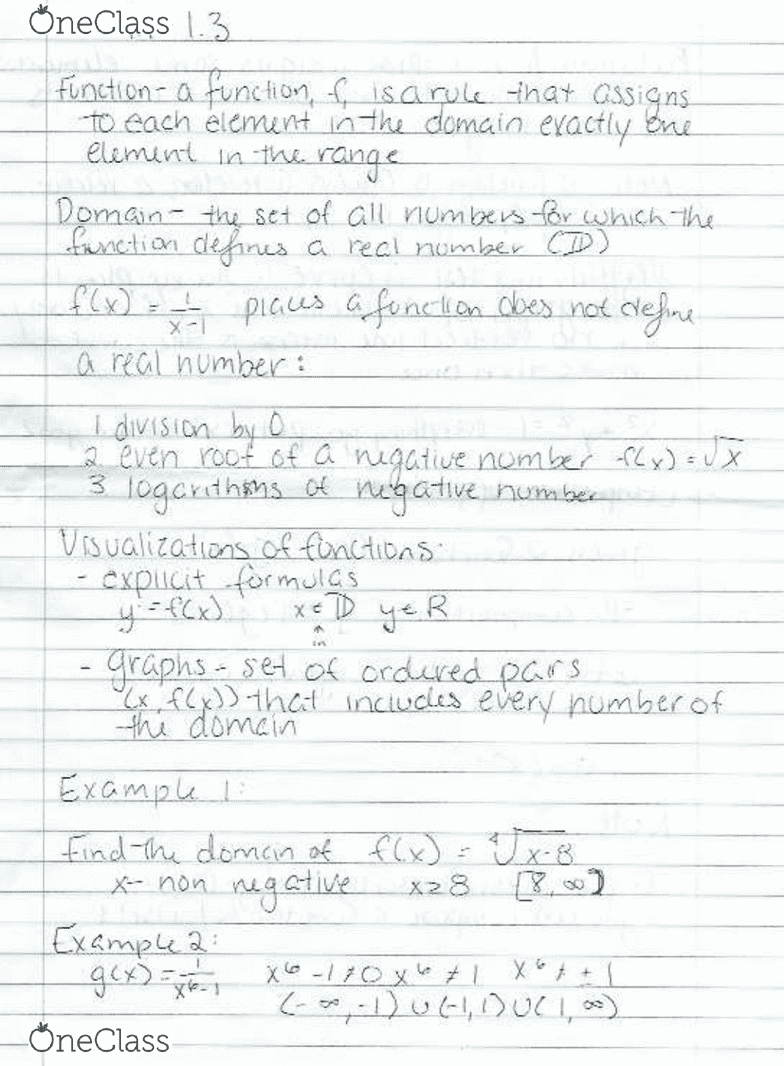 OneClass 1.3
Function - a function, f, is a rule that assigns
to each element in the domain exactly one
element in the range
Domain - the set of all numbers for which the
function defines a real number (D)
f(x) = 1/x-1 places a function does not define
a real number:
1. division by 0
2 even root of a negative number f(x) = √x
3 logarithms of negative number
Visualizations of functions:
- explicit formulas
y = f(x) x ∈ D y ∈ R
in
- graphs - set of ordered pairs
(x, f(x)) that includes every number of
the domain
Example 1:
find the domain of f(x) = ⁴√x-8
x - non negative x ≥ 8 [8, ∞)
Example 2:
g(x) = 1/x⁶-1 x⁶ - 1 ≠ 0 x⁶ ≠ 1 x⁶ ≠ ± 1
(-∞, -1) ∪ (-1, 1) ∪ (1, ∞)
OneClass